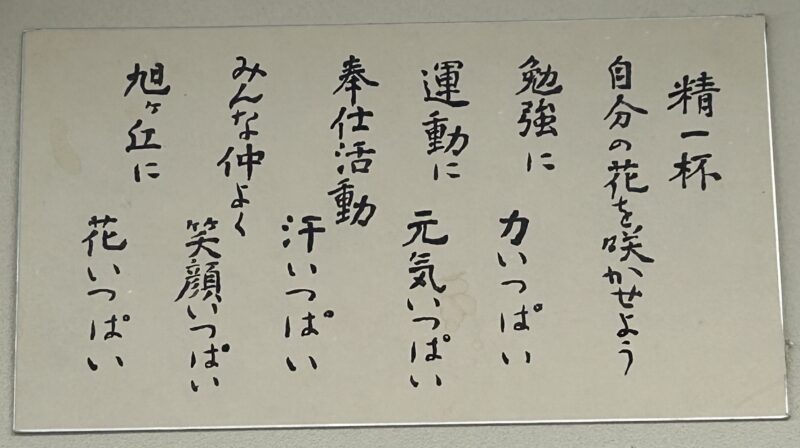 精一杯
自分の花を咲かせよう
勉強に
力いっぱい
運動に
元気いっぱい
奉仕活動
汗いっぱい
みんな仲よく
笑顔いっぱい
旭ヶ丘に
花いっぱい